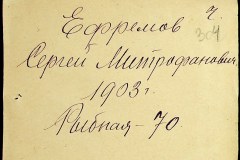 Ефремов
Сергей Митрофанович
1903 г.
Рыбная-70